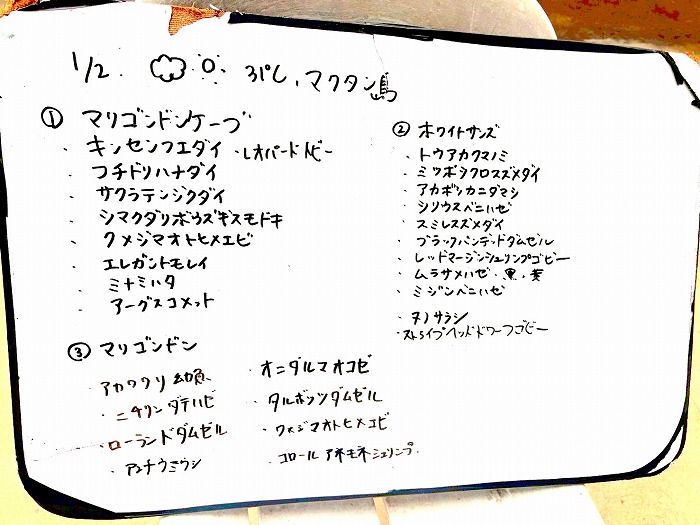 1/2. 31℃、マクタン島
① マリゴンドンケーブ
・キンセンフエダイ ・レオパードハビー
・フチドリハナダイ
・サクラテンジクダイ
・シマクダリボウズギスモドキ
・クメジマオトヒメエビ
・エレガントモレイ
・ミナミハタ
・アーグスコメット
② ホワイトサンズ
・トウアカクマノミ
・ミツボシクロスズメダイ
・アカボシカニダマシ
・シリウスベニハゼ
・スミレスズメダイ
・ブラックバンデッドダムゼル
・レッドマージンシュリンプゴビー
・ムラサメハゼ・黒、黄
・ミジンベニハゼ
・ヌノサラシ
・ストライプヘッドドワーフゴビー
③ マリゴンドン
・アカククリ幼魚
・ニチリンダテハゼ
・ローランドダムゼル
・アンナウミウシ
・オニダルマオコゼ
・タルボッツダムゼル
・クメジマオトヒメエビ
・コロールアネモネシュリンプ